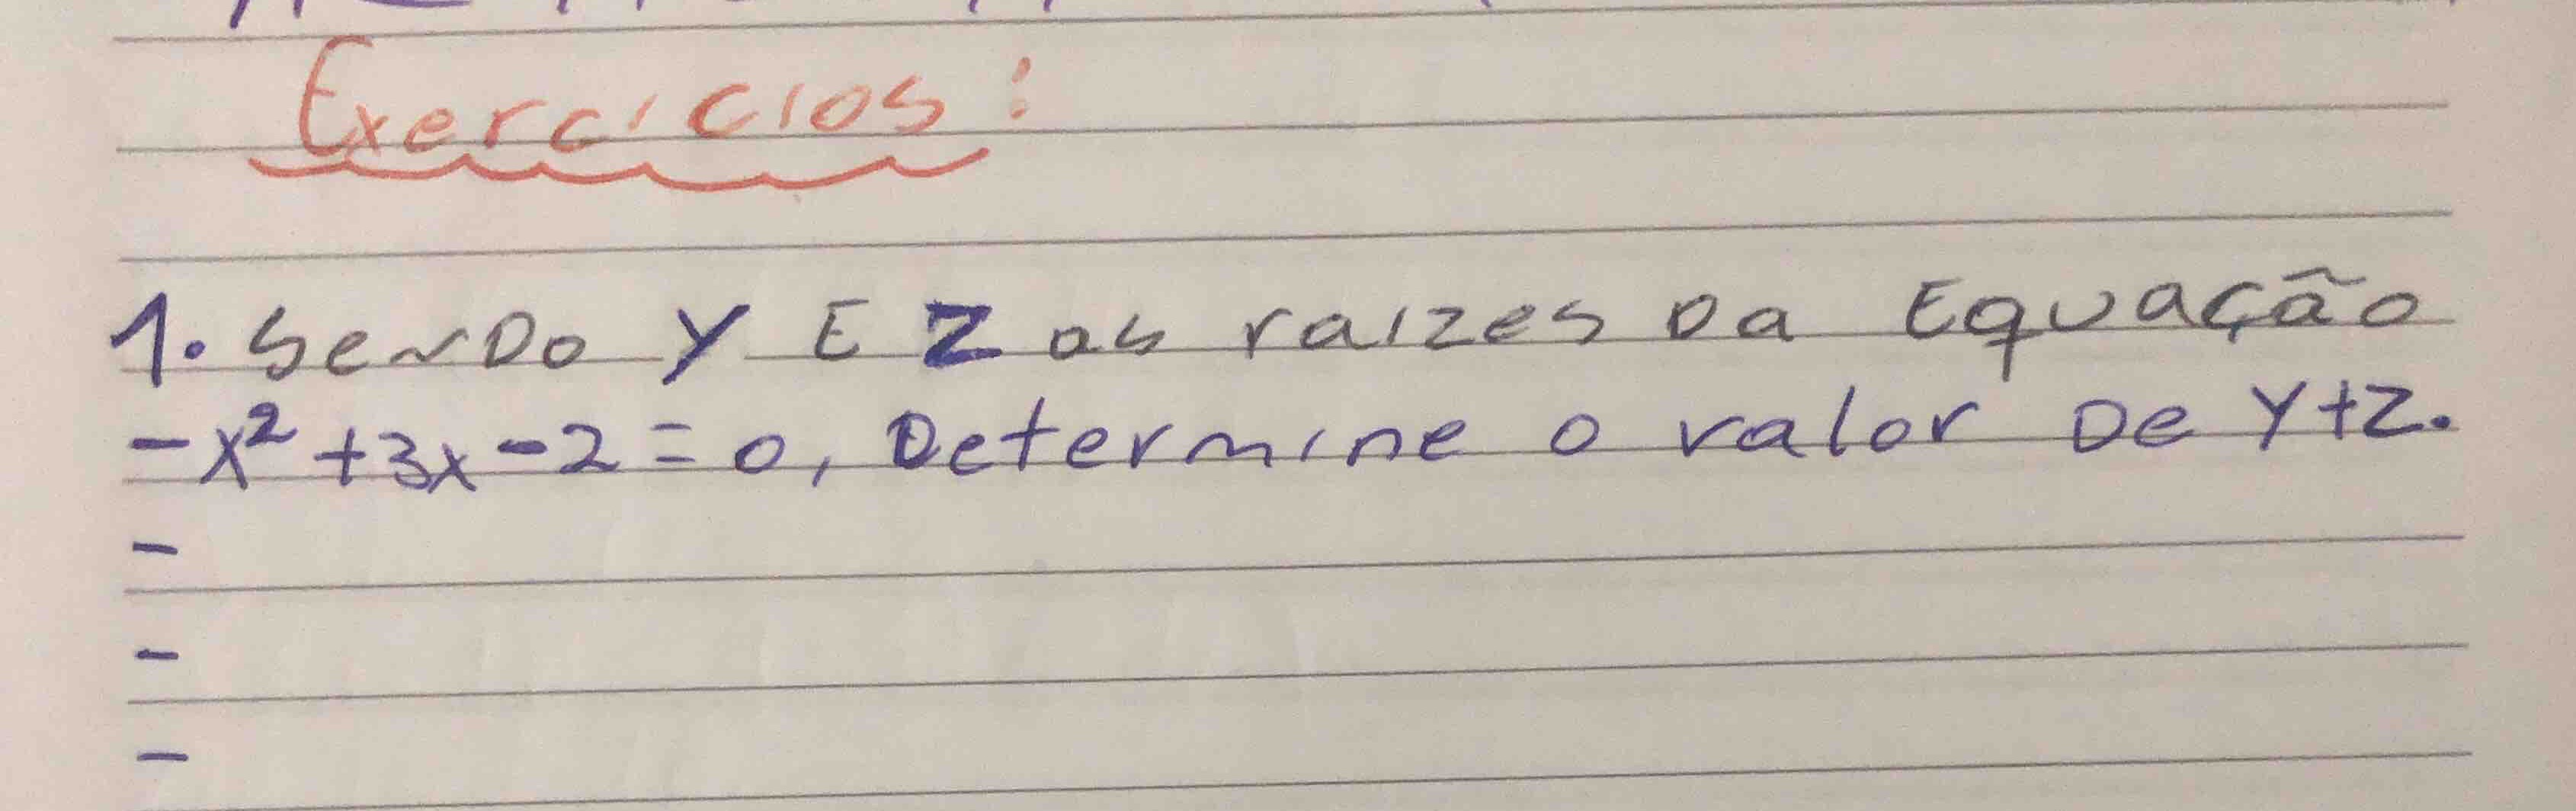 Exercicios:
1. Sendo y E Z as raizes Da Equação
-x² +3x-2=0, Determine o valor De Y+Z.
-
-
-